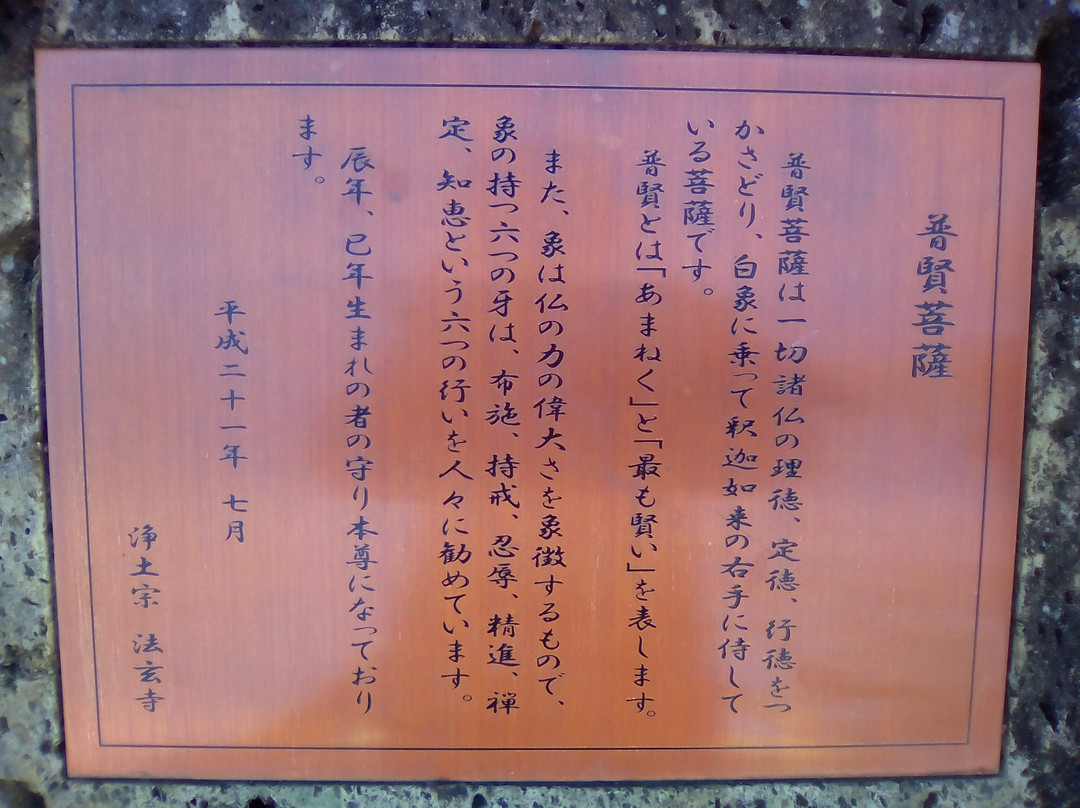 普賢菩薩
普賢菩薩は一切諸仏の理徳、定徳、行徳をつ
かさどり、白象に乗って釈迦如来の右手に侍して
いる菩薩です。
普賢とは「あまねく」と「最も賢い」を表します。
また、象は仏の力の偉大さを象徴するもので、
象の持つ六つの牙は、布施、持戒、忍辱、精進、禅
定、知恵という六つの行いを人々に勧めています。
辰年、巳年生まれの者の守り本尊になっており
ます。
平成二十一年 七月
浄土宗 法玄寺